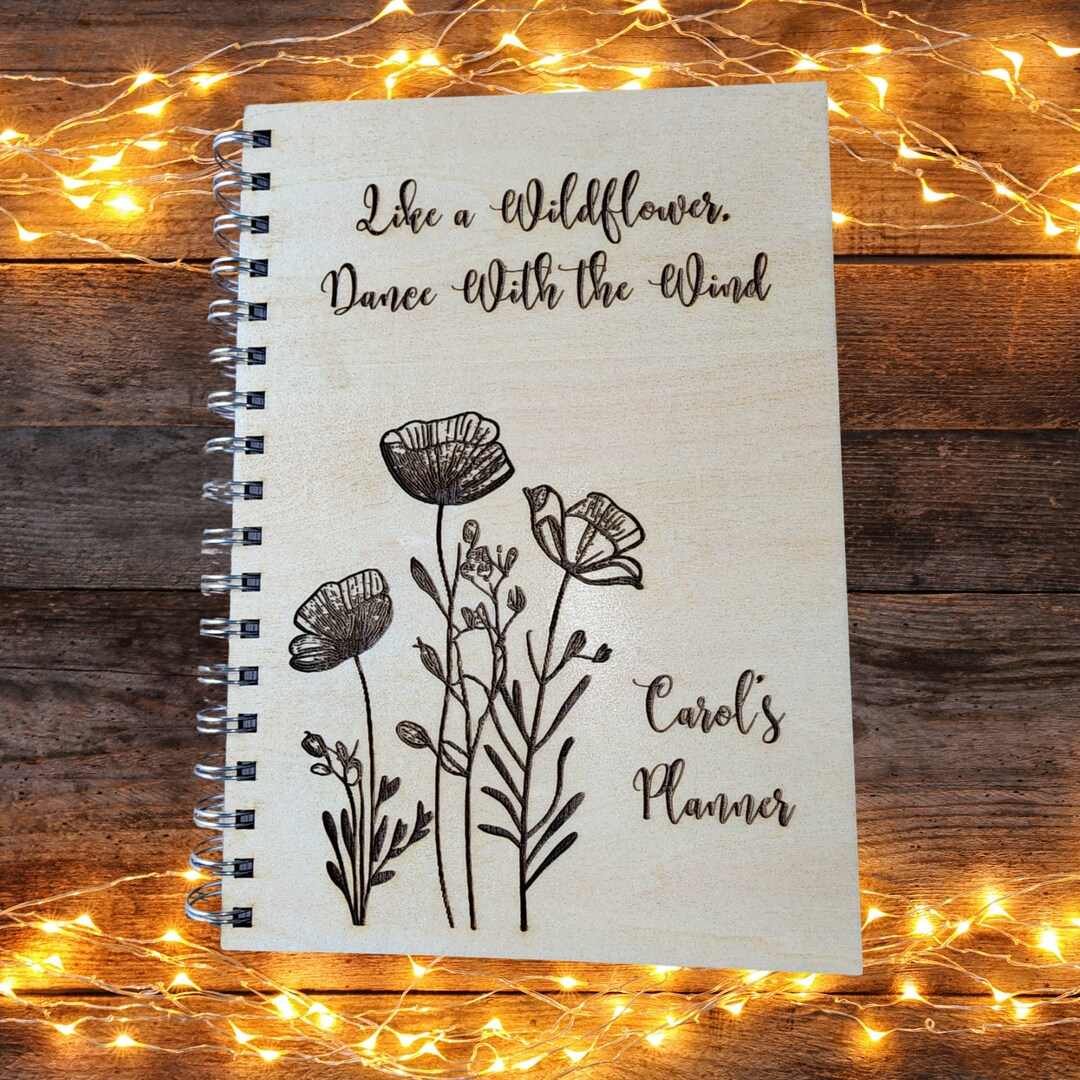 Like a Wildflower,
Dance With the Wind
Carol's
Planner